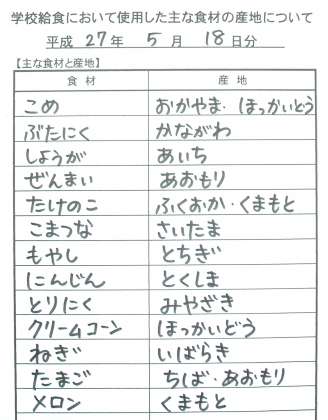 学校給食において使用した主な食材の産地について
平成 27 年 5 月 18 日分
【主な食材と産地】
食材 産地
こめ おかやま・ほっかいとう
ぶたにく かながわ
しょうが あいち
ぜんまい あおもり
たけのこ ふくおか・くまもと
こまつな さいたま
もやし とちぎ
にんじん とくしま
とりにく みやざき
クリームコーン ほっかいどう
ねぎ いばらき
たまご ちば・あおもり
メロン くまもと